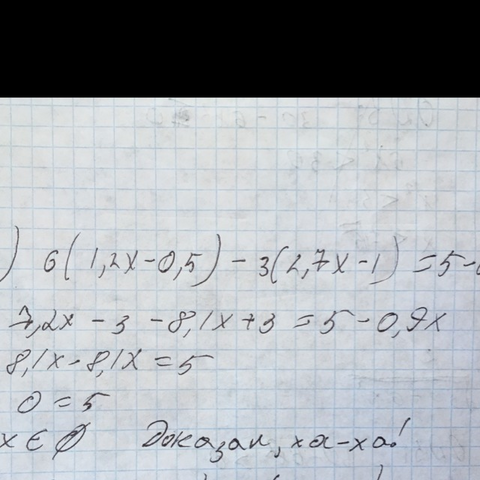 ) 6(1,2x-0,5) - 3(2,7x-1) = 5-0
7,2x - 3 - 8,1x + 3 = 5 - 0,9x
8,1x - 8,1x = 5
0 = 5
x ∈ ∅ Доказал, ха-ха!